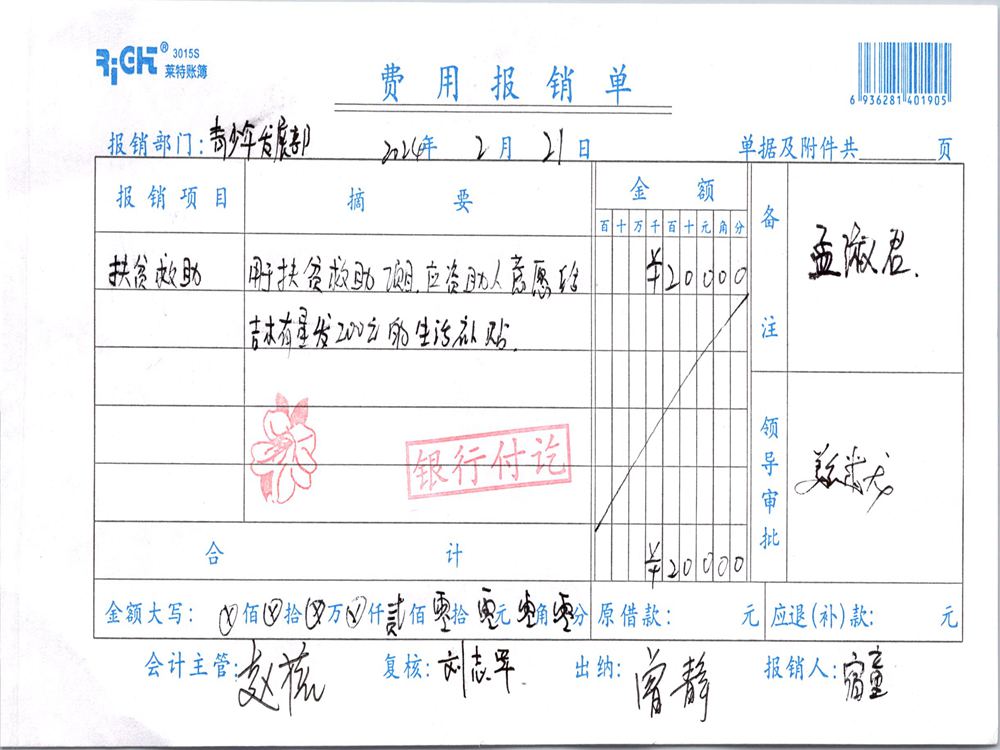 RiGHT® 3015S
莱特账簿
费用报销单
6 936281 401905
报销部门：青少年发展部 2024年 2月 21日 单据及附件共 页
报销项目 摘要 金额 备注
百十万千百十元角分
扶贫救助 用于扶贫救助项目,应资助人意愿给 ¥20000 孟淑君.
吉林有星发200元的生活补贴.
银行付讫
领导审批
合计 ¥20000
金额大写： ⓧ佰ⓧ拾ⓧ万ⓧ仟贰佰零拾零元零角零分 原借款： 元 应退(补)款： 元
会计主管: 复核: 刘志军 出纳: 曾静 报销人: 宿童